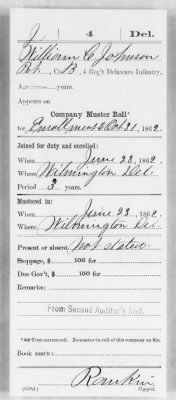 J | 4 | Del.
William C Johnson
Pvt., Co. B, 4 Reg't Delaware Infantry.
Age years.
Appears on
Company Muster Roll
for Enrollment to Oct 31, 1862.
Joined for duty and enrolled:
When June 23, 1862.
Where Wilmington Del.
Period 3 years.
Mustered in:
When June 23, 1862.
Where Wilmington Del.
Present or absent Not stated.
Stoppage, $ 100 for
Due Gov't, $ 100 for
Remarks:
From Second Auditor's Roll.
Book mark:
Rankin
Copyist.